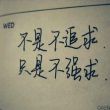 WED
不是不追求.
只是不强求